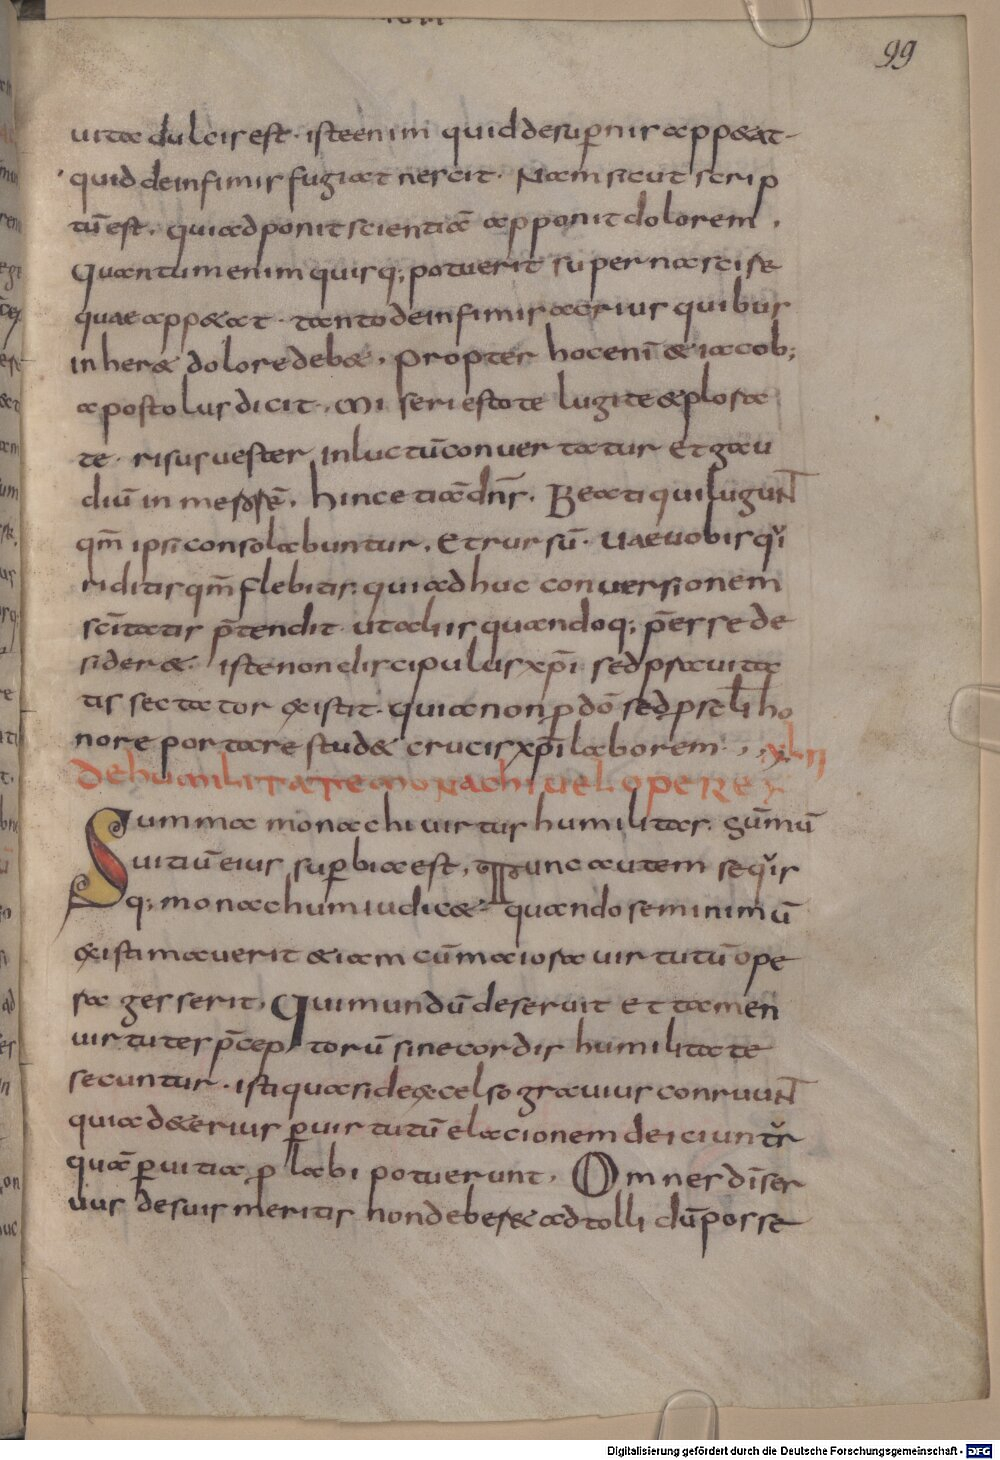 99
uita dulcis est. iste enim quid desup̄nis app&at.
quid deinfimis fugiat nescit. Nam sicut scrip
tū est. qui adponit scientiā apponit dolorem.
Quantum enim quisq; potuerit superna scise
quae app&at. tanto deinfimis acrius quibus
inher& dolore deb&. propter hoc enī & iacob;
apostolus dicit. Mi seri estote lugite & plora
te. risus uester inluctū conuertatur Et gau
diū in merorē. hinc etiā dn̄s. Beati qui lugunt
qm̄ ipsi consolabuntur. Et rursū. uae uobis qui
riditis qm̄ flebitis. qui adhuc conuersionem
scītatis p̄tendit ut aliis quandoq; p̄esse de
sider&. iste non discipulus xp̄i sed praauita
tis sectator existit. quia non p dō sed p scłi ho
nore portare stud& crucis xp̄i laborem. xlii
De humilitate monachi uel opere
Summa monachi uirtus humilitas. Summū
uitiū eius sup̄bia est. Tunc autem se quis
q; monachum iudic& quando se minimū
existimauerit & iam cū maiora uirtutū ope
ra gesserit. Qui mundū deseruit et tamen
uirtutes p̄ceptorū sine cordis humilitate
secuntur. isti quasi de excelso grauius conruunt
quia d&erius p̄ uirtutū elacionem deiciuntr
quā p̄ uitia p labi potuerunt. Omnes dī ser
uus de suis meritis non debere& adtolli dū posse
Digitalisierung gefördert durch die Deutsche Forschungsgemeinschaft - DFG